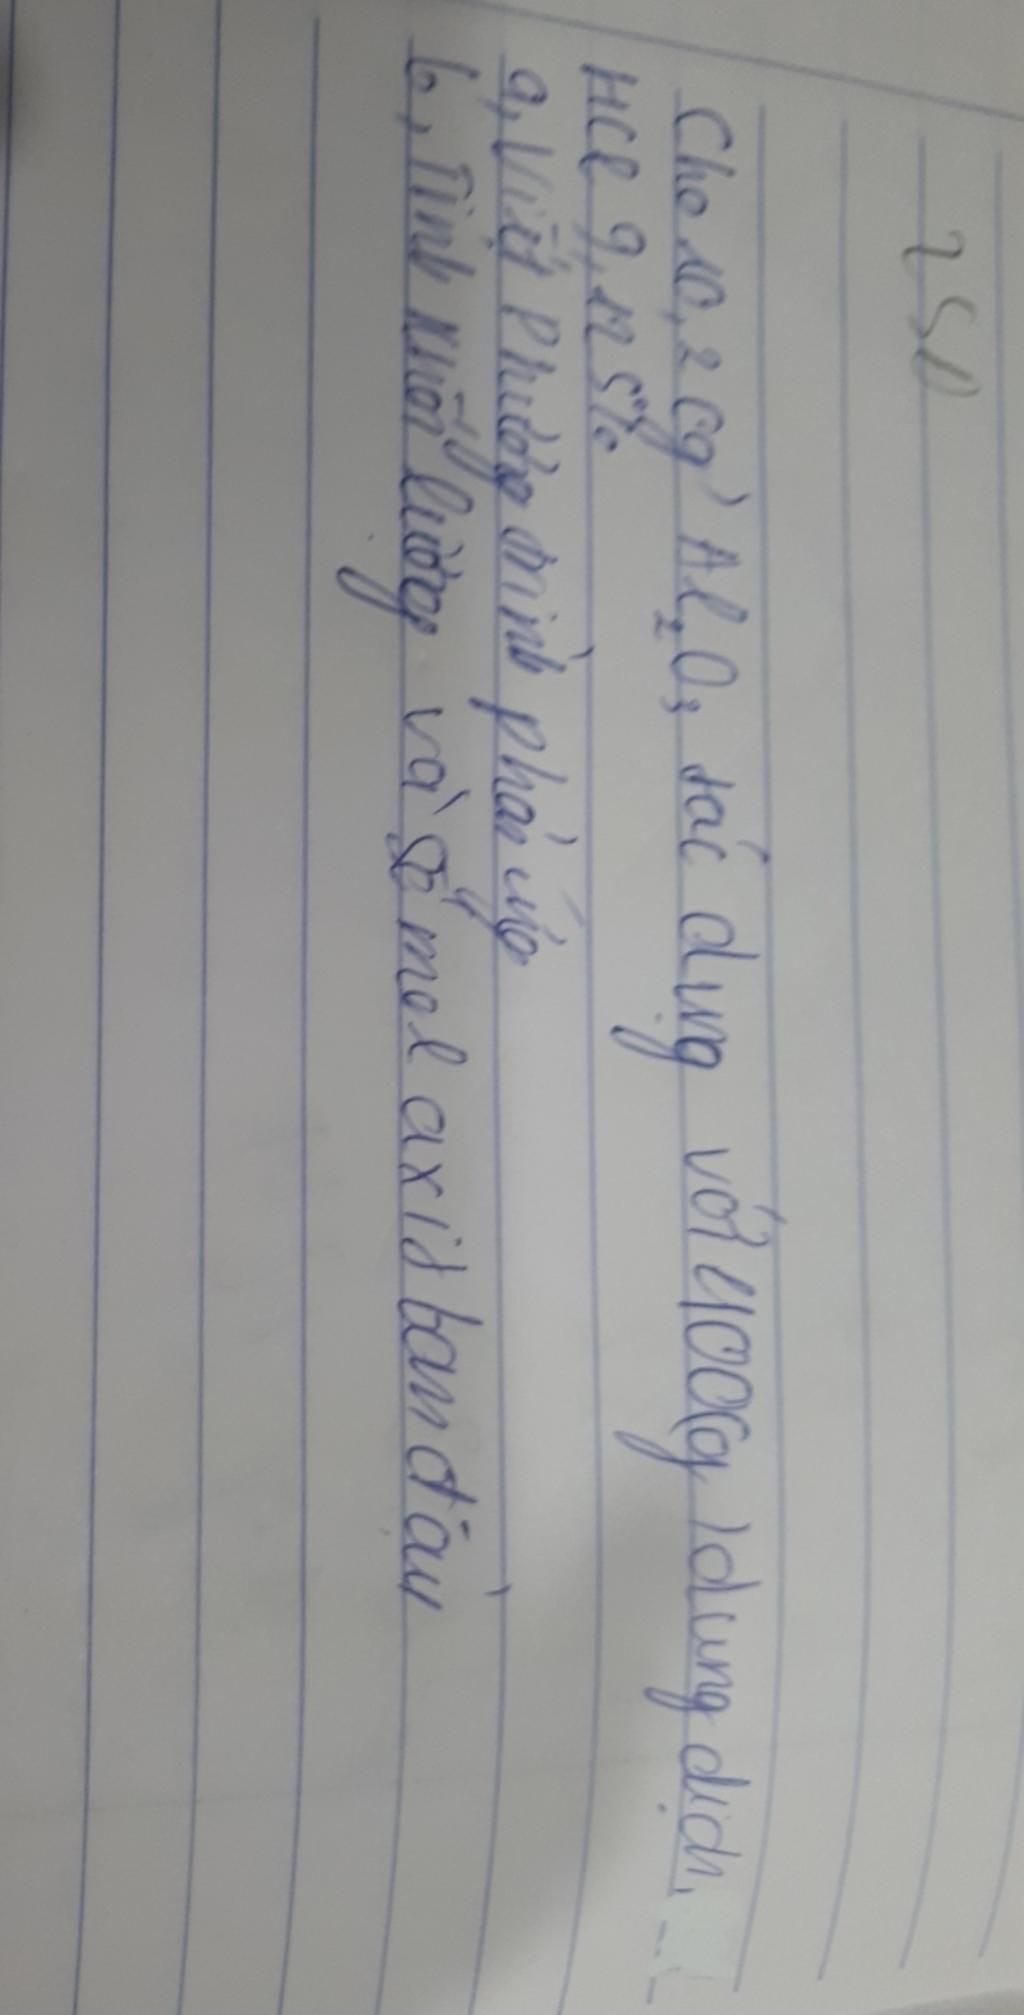 250
Cho 10,2 (g) Al2O3 tác dụng với 400(g) dung dịch
HCl 9,125%
a, Viết Phương trình phản ứng
b, Tính khối lượng và số mol axit ban đầu